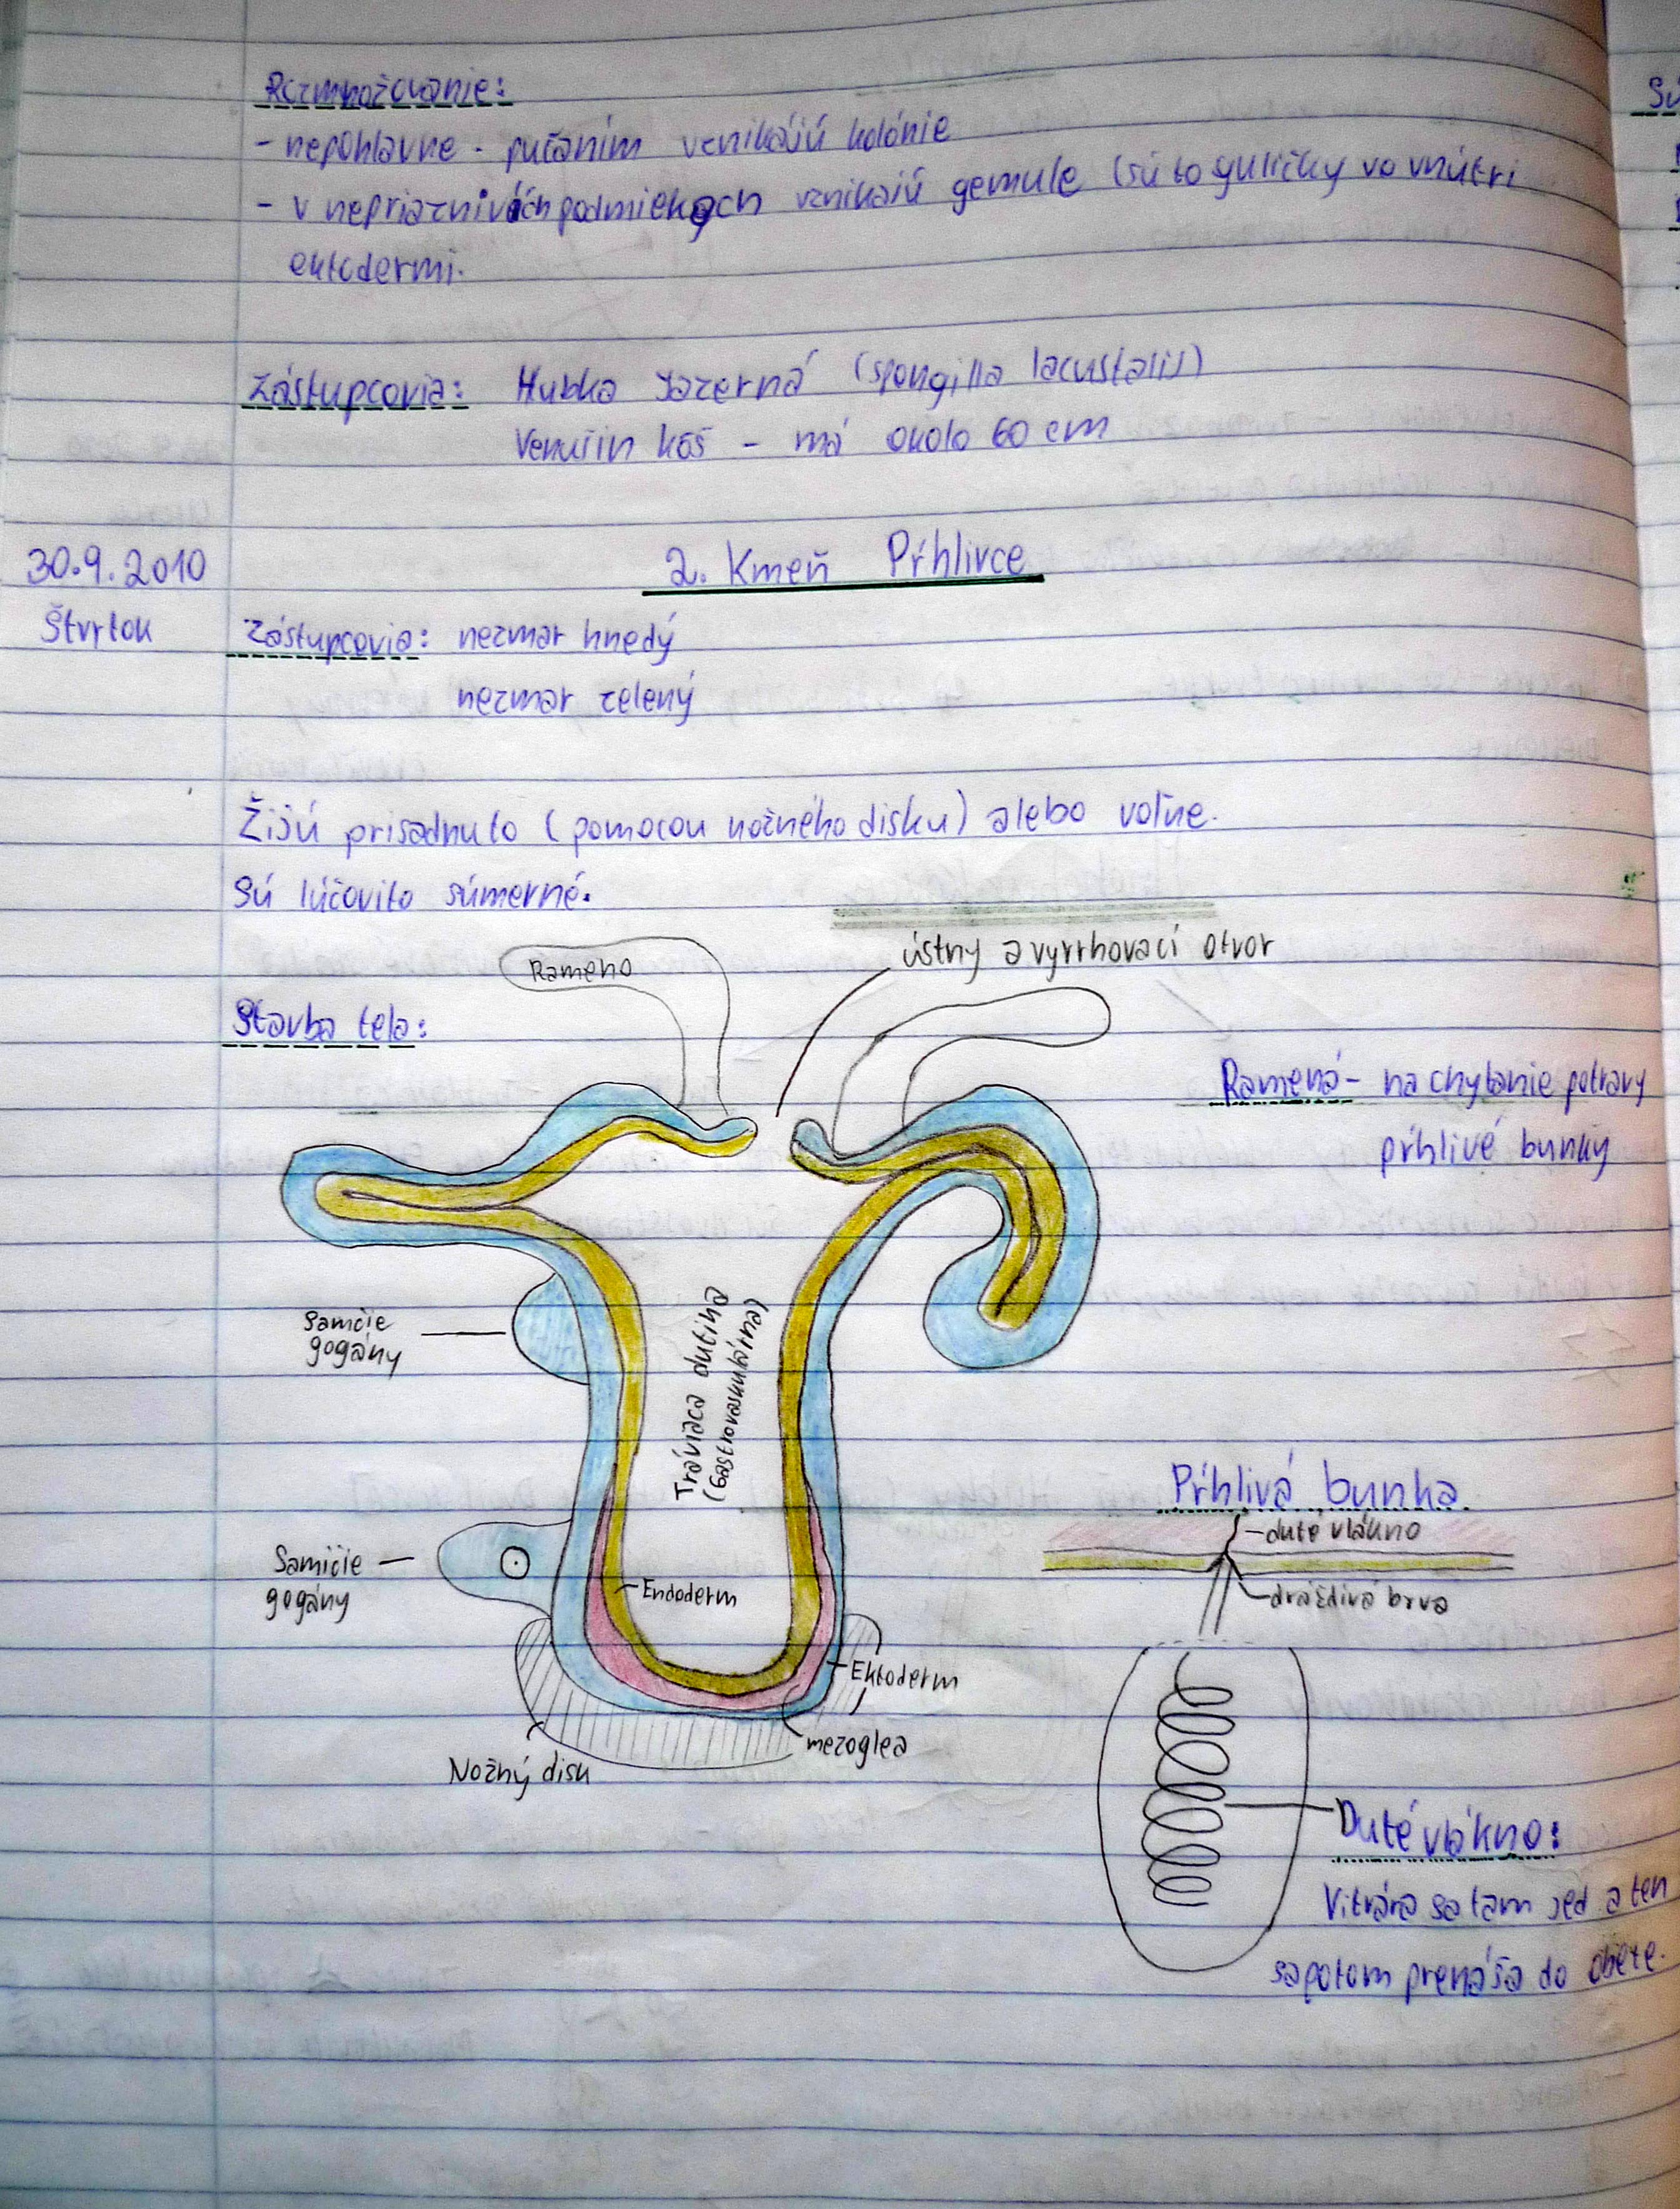 Rozmnožovanie:
- nepohlavne - pučaním vznikajú kolónie
- v nepriaznivých podmienkach vznikajú gemule (sú to guličky vo vnútri
ektodermi.
Zástupcovia: Hubka Jazerná (spongilla lacustalis)
Venušin kôš - má okolo 60 cm
30.9.2010
2. Kmeň Pŕhlivce
Štvrtok
Zástupcovia: nezmar hnedý
nezmar zelený
Žijú prisadnuto (pomocou nožného disku) alebo voľne.
Sú lúčovito súmerné.
ústny a vyvrhovací otvor
Rameno
Stavba tela:
Ramená - na chytanie potravy
pŕhlivé bunky
Samčie
gogány
Tráviaca dutina
(Gastrovaskulárna)
Pŕhlivá bunka
duté vlákno
dráždivá brva
Samičie
gogány
Endoderm
Ektoderm
mezoglea
Nožný disk
Duté vlákno:
Vitvára sa tam jed a ten
sa potom prenáša do obete.